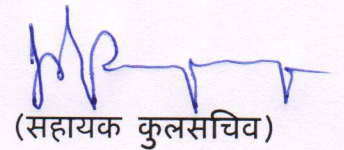 (सहायक कुलसचिव)